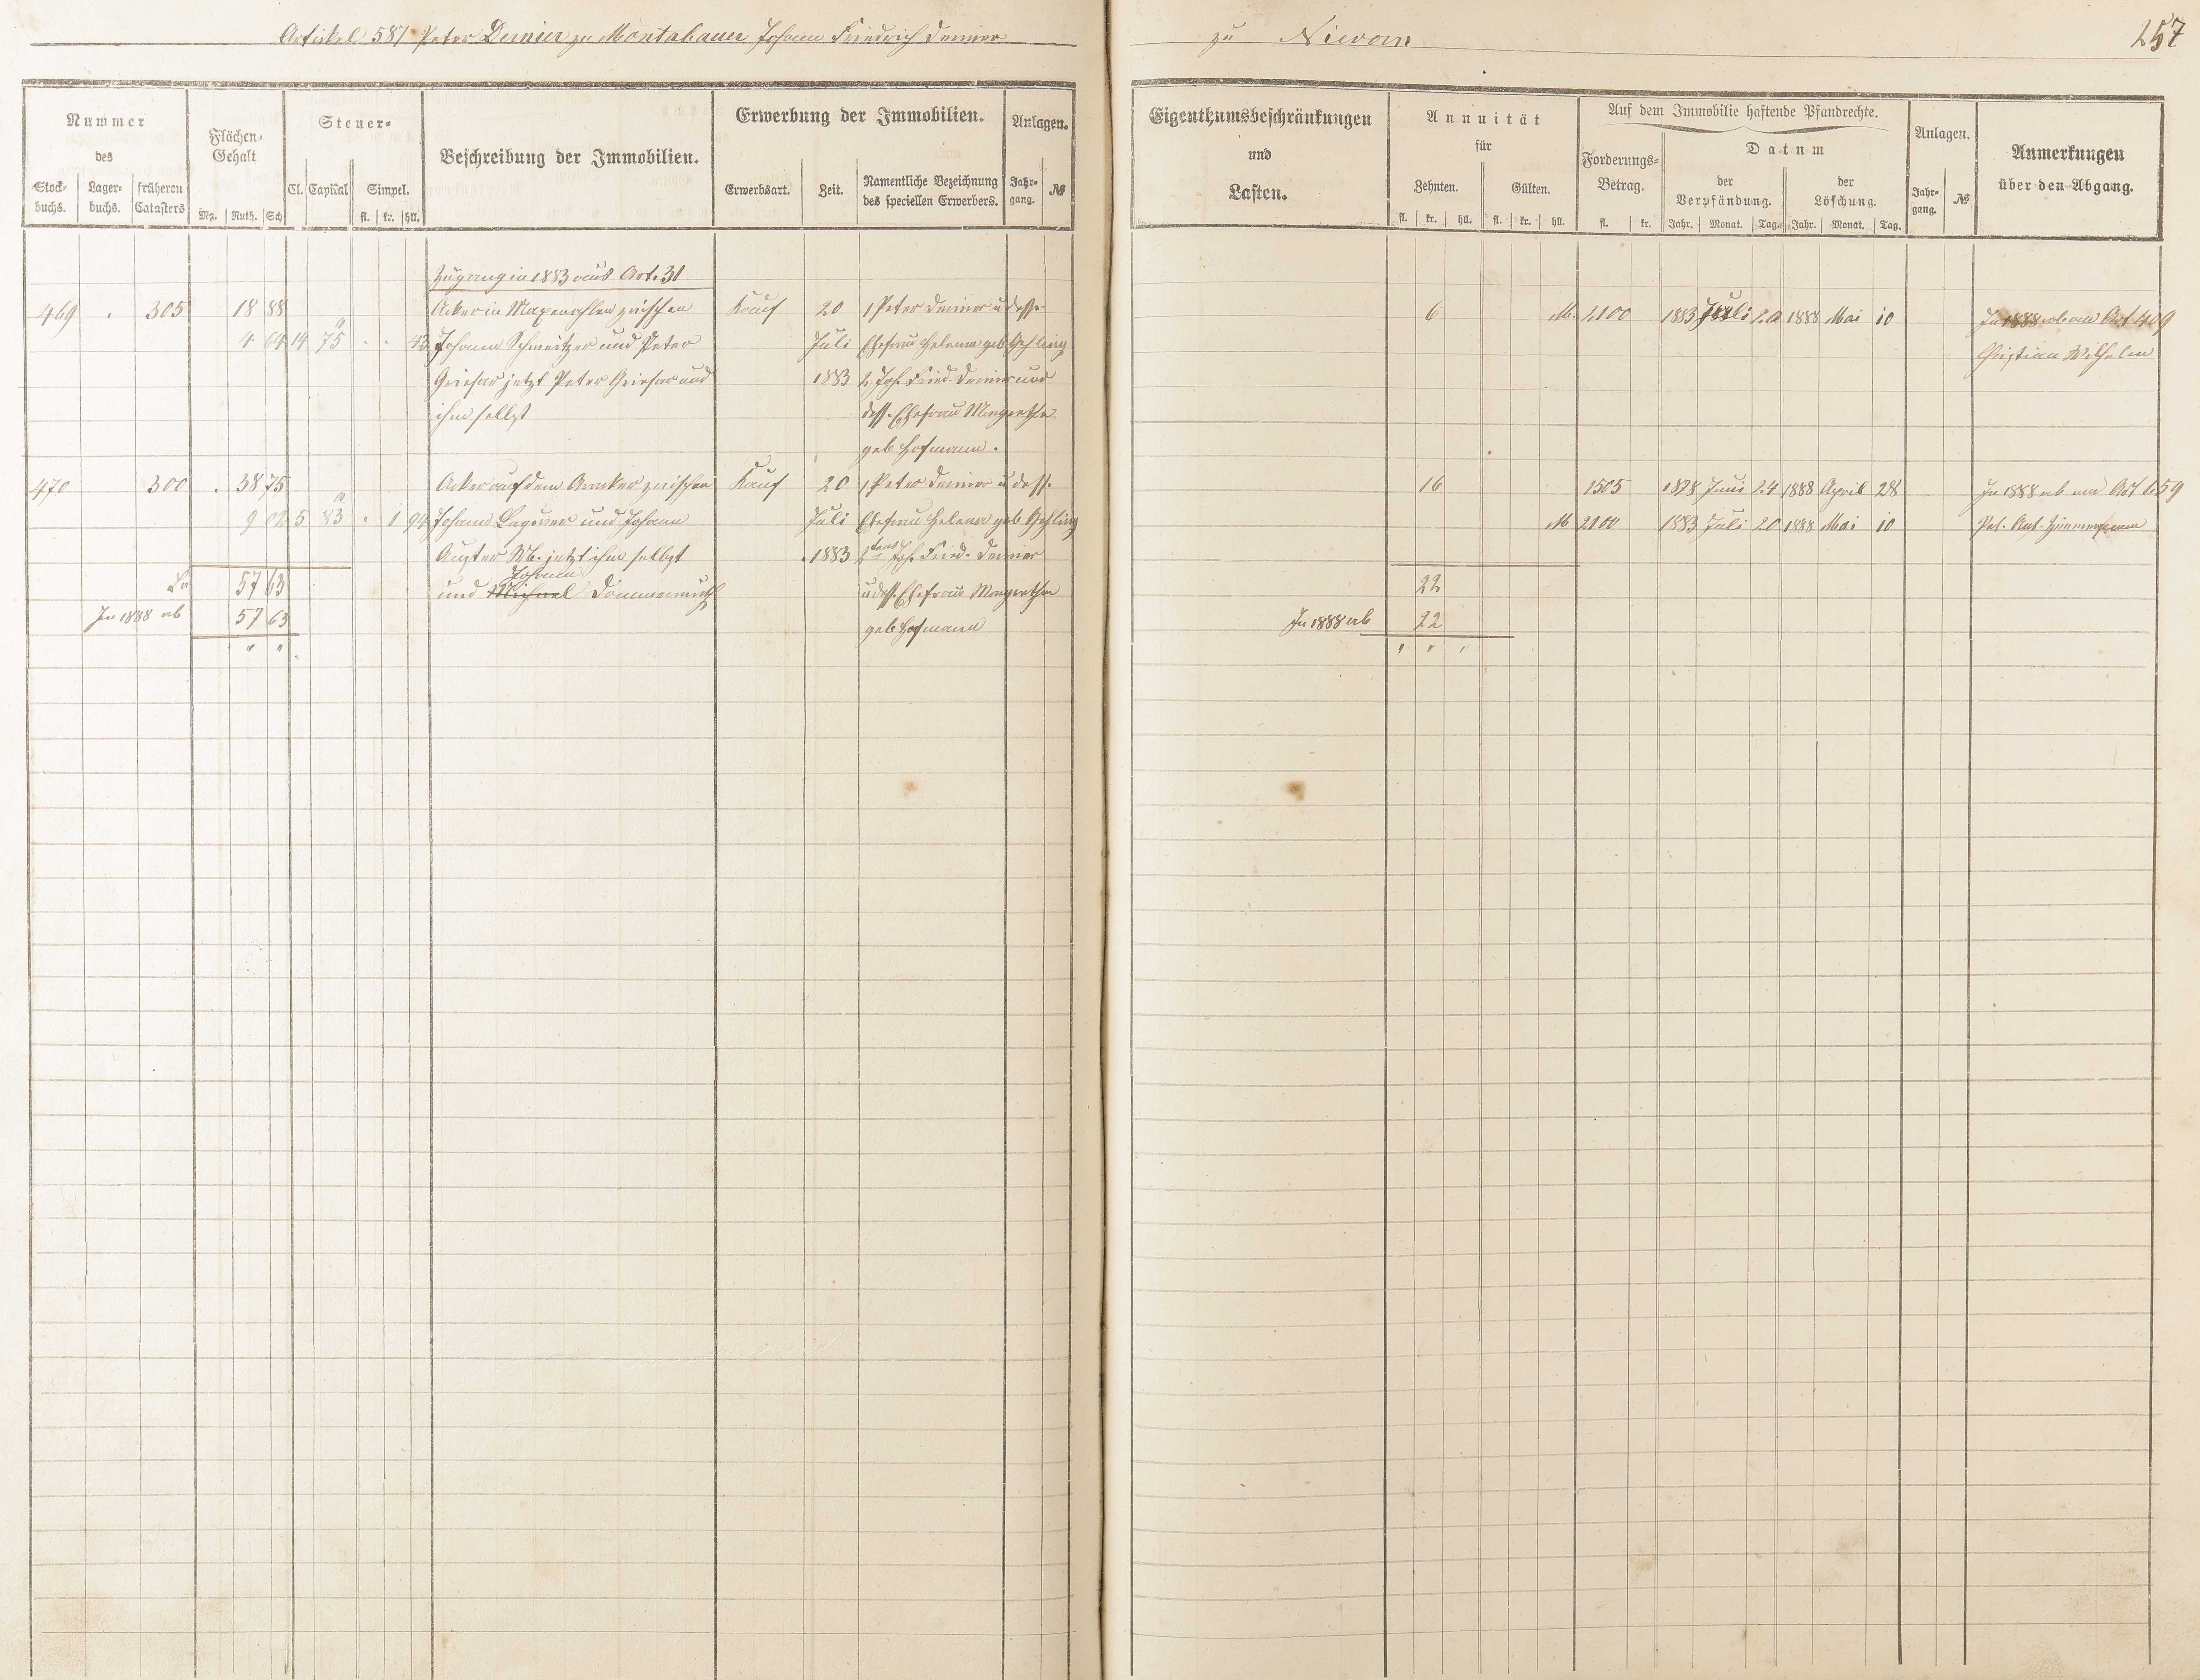 Artikel 587 Peter Demier zu Montabauer Johann Friedrich Demier
zu
257
Nummer
des
Stock-
buchs.
Lager-
buchs.
früheren
Catasters
Flächen-
Gehalt
Mg.
Ruth.
Sch
Steuer-
Cl.
Capital
Simpel.
fl.
kr.
hll.
Beschreibung der Immobilien.
Erwerbung der Immobilien.
Erwerbsart.
Zeit.
Namentliche Bezeichnung
des speciellen Erwerbers.
Anlagen.
Jahr-
gang.
№
Eigenthumsbeschränkungen
und
Lasten.
Annuität
für
Zehnten.
Gülten.
fl. kr. hll. fl. kr. hll.
Auf dem Immobilie haftende Pfandrechte.
Forderungs-
Betrag.
fl. kr.
Datum
der
Verpfändung.
der
Löschung.
Jahr. Monat. Tag. Jahr. Monat. Tag.
Anlagen.
Jahr-
gang.
№
Anmerkungen
über den Abgang.
Zugang in 1883 aus Art. 31
469 305 18 88 Acker in zwischen Kauf 20 1 Peter Demier u dess.
4 64 14 75 43 Johann Schweitzer und Peter Juli Ehefrau Helena geb Gehling
Griesar jetzt Peter Griesar und 1883 2, Joh. Fried. Demier und
ihm selbst dess. Ehefrau Margretha
geb Hofmann.
470 300 38 75 Acker auf dem zwischen Kauf 20 1 Peter Demier u dess.
9 02 5 83 1 94 Johann und Johann Juli Ehefrau Helena geb Gehling
jetzt ihm selbst 1883 2tens Joh. Fried. Demier
La 57 63 und Michael Johann u dess. Ehefrau Margretha
In 1888 ab 57 63 geb Hofmann
" "
6 M. 2100 1883 Juli 20 1888 Mai 10 In 1888 ab an Art 409
Christian Wilhelm
16 1505 1878 Juni 24 1888 April 28 In 1888 ab an Art 659
M 2100 1883 Juli 20 1888 Mai 10 Pet. Ant. Zimmermann
22
In 1888 ab 22
" " "